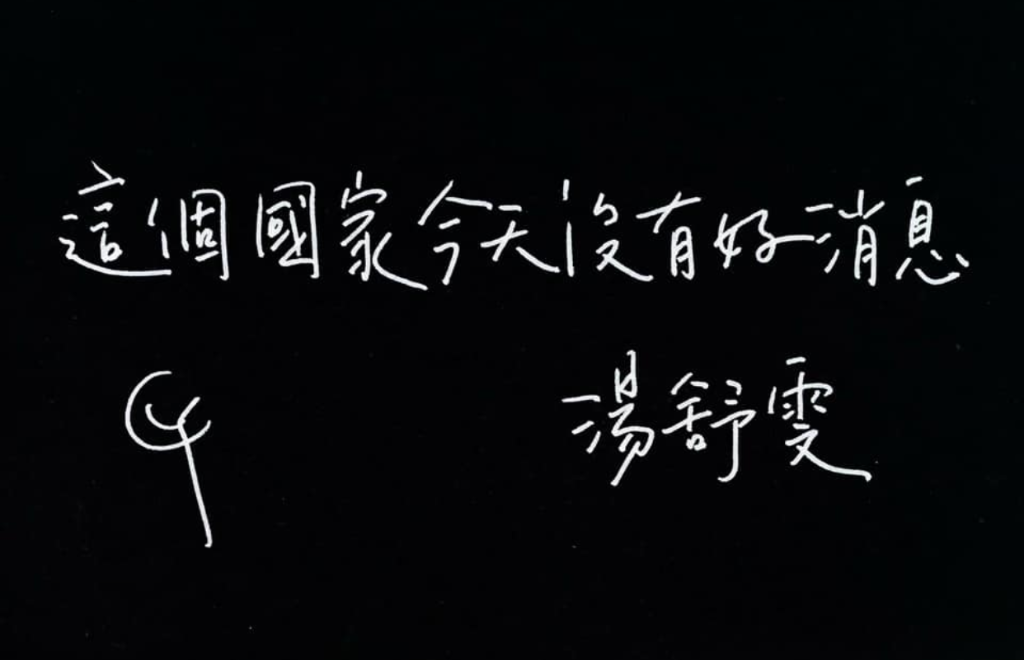 這個國家今天沒有好消息
湯舒雯